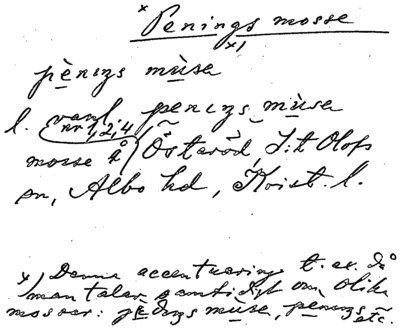 x Penings mosse
x)
pènıŋs mùsa
l. vanl. penıŋs mùsa
nr 1, 2, 4
mosse å Österöd, S:t Olofs
sn, Albo hd, Krist. l.
x) Denna accentuering t. ex. då
man talar samtidigt om olika
mossar: pènıŋs mùse, pènıŋs etc.